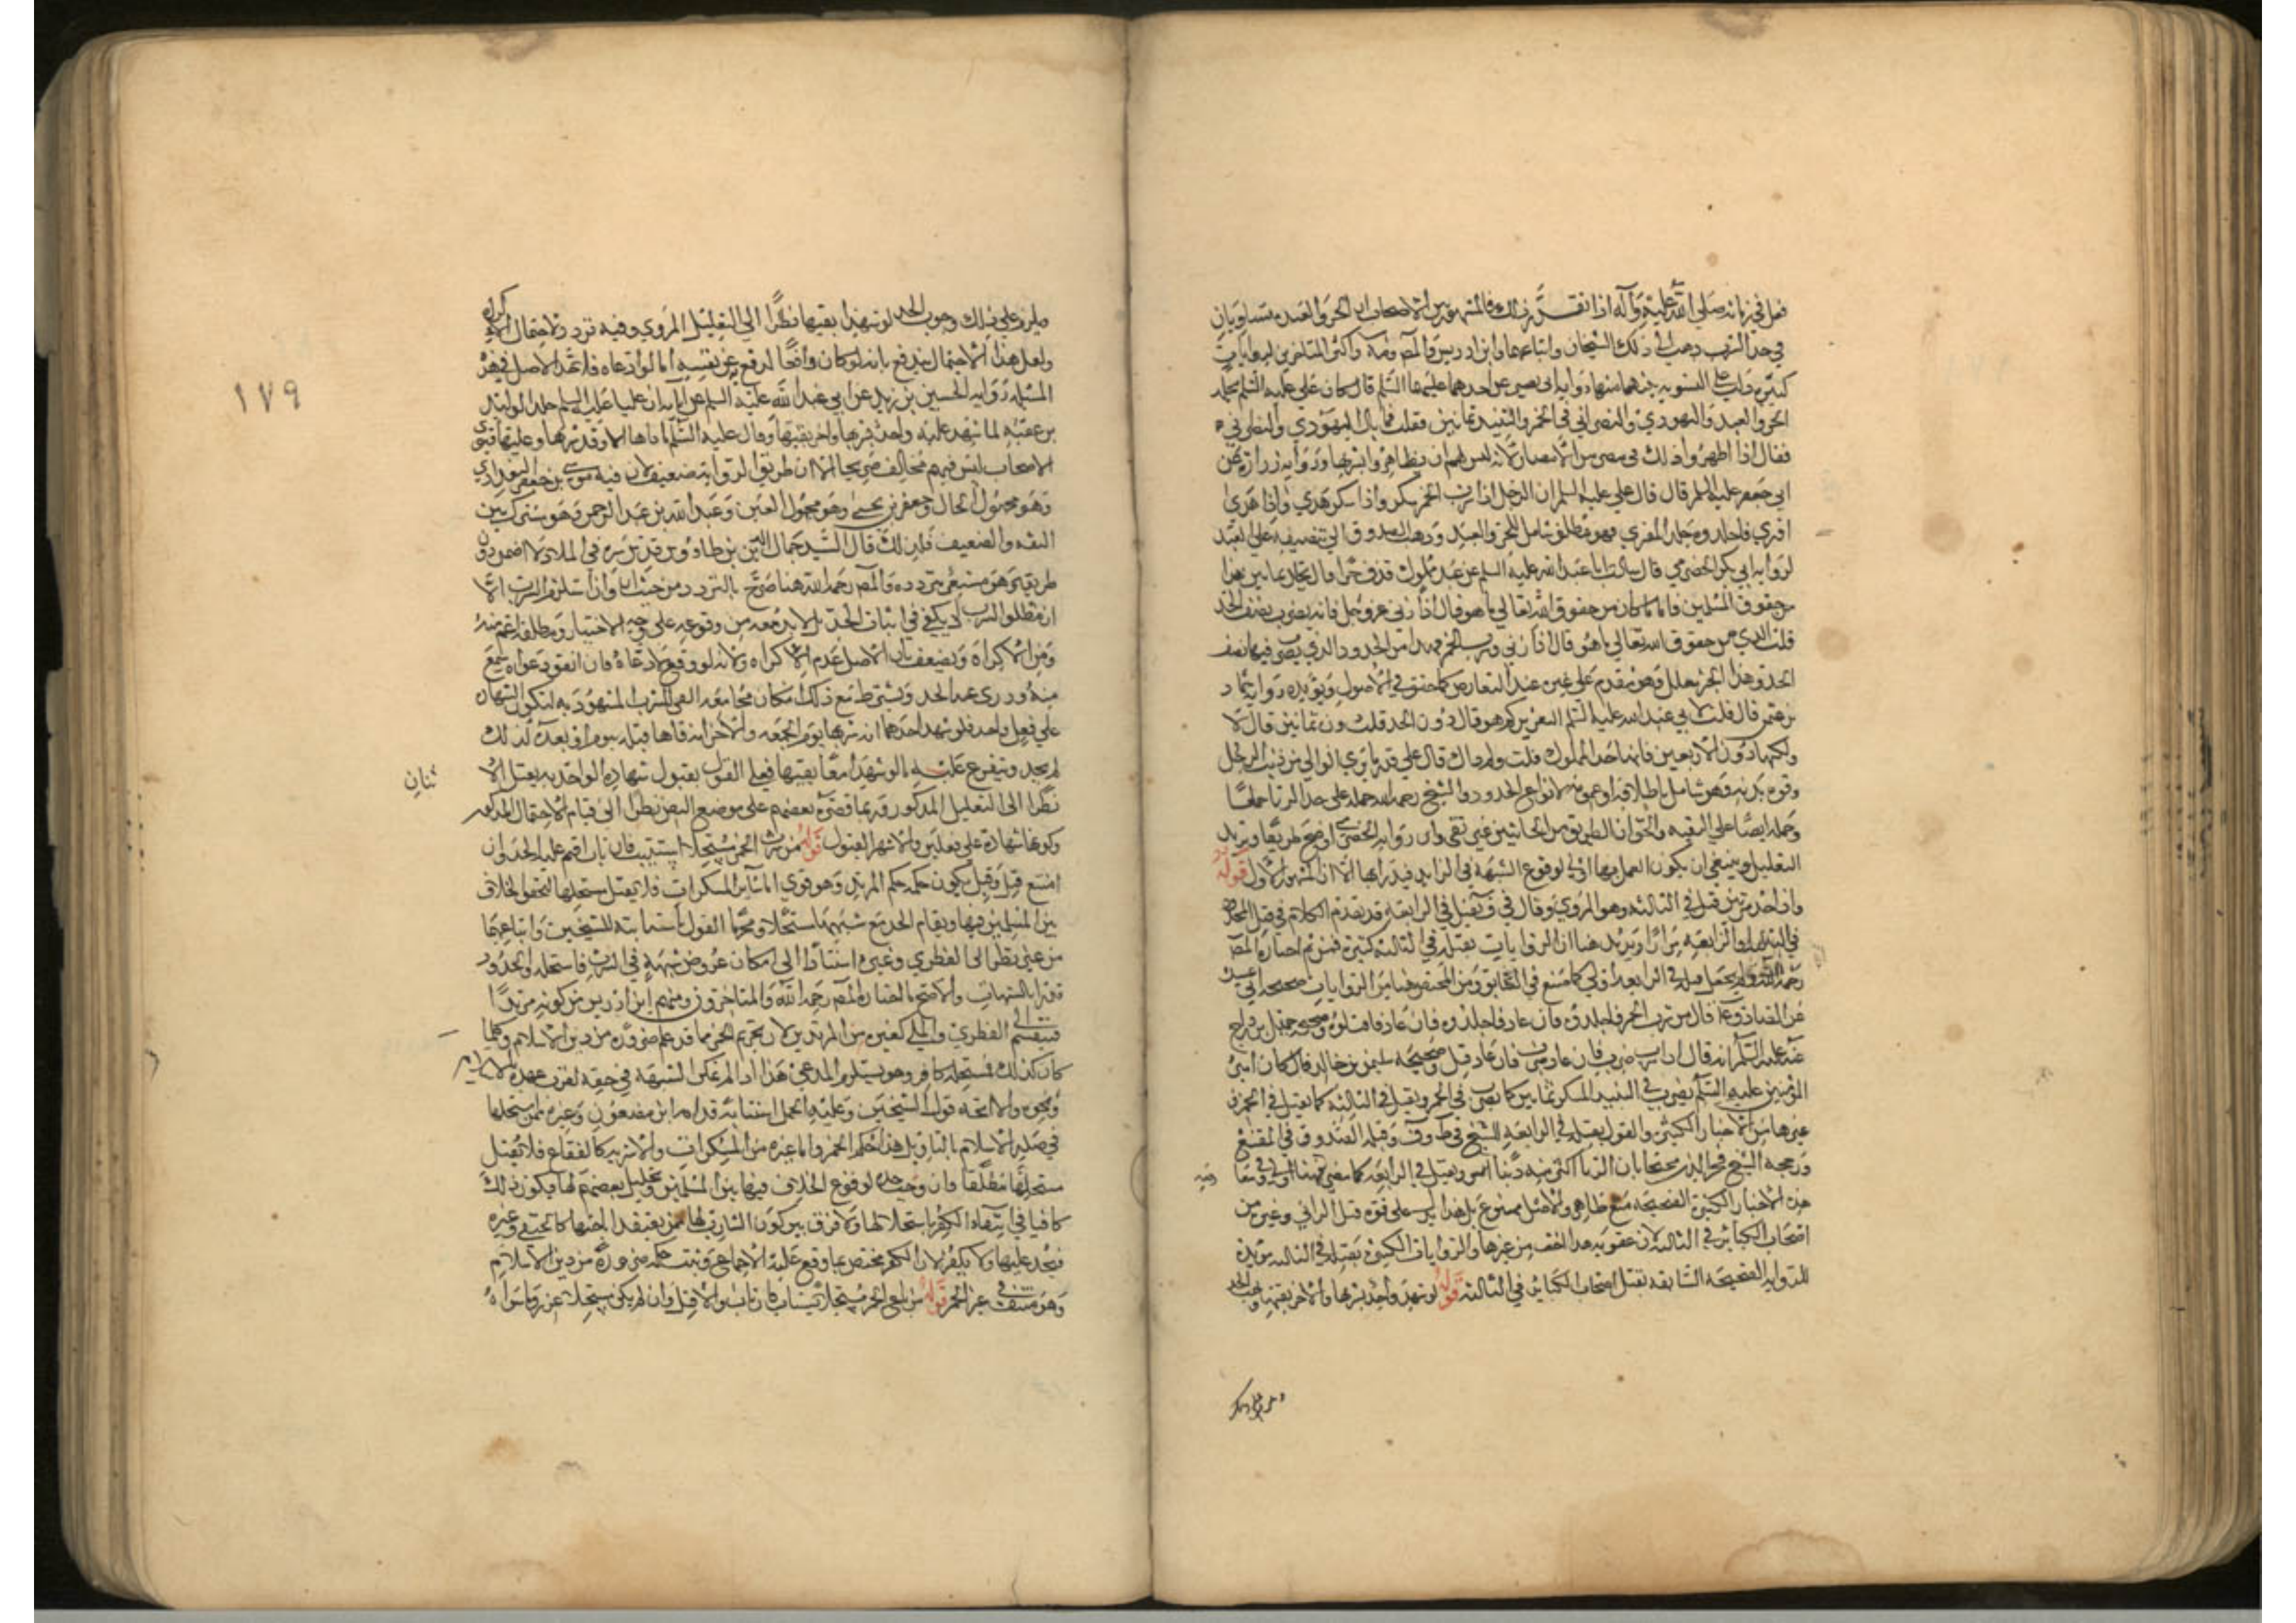 فعل في زمانه صلى الله عليه وآله اذا تقرر ذلك فالمشهور بين الاصحاب ان الحر والعبد متساويان
في حد الشرب ذهب الى ذلك الشيخان واتباعهما وابن ادريس والمص ومة واكثر المتاخرين لروايات
كثيرة دلت على التسوية بينهما منها رواية ابي بصير عن احدهما عليهما السلم قال كان علي عليه السلم يجلد
الحر والعبد واليهودي والنصراني في الخمر والنبيذ ثمانين فقلت فما بال اليهودي والنصراني
فقال اذا اظهروا ذلك في مصر من الامصار لانه ليس لهم ان يظاهروا بشربها ورواية زرارة عن
ابي جعفر عليه السلم قال قال علي عليه السلم ان الرجل اذا شرب الخمر سكر واذا سكر هذي واذا هذى
افترى فاجلدوه جلد المفتري فهو مطلق شامل للحر والعبد وذهب الصدوق الى تنصيفه على العبد
لرواية ابي بكر الحضرمي قال سالت ابا عبد الله عليه السلم عن عبد مملوك قذف حرا قال يجلد ثمانين هذا
من حقوق المسلمين فاما ما كان من حقوق الله تعالى ما هو قال اذا زنى عز وجل فانه يضرب نصف الحد
قلت الذي من حقوق الله تعالى ما هو قال اذا زنى وشرب الخمر فهذا من الحدود الذي يضرب فيها نصف
الحد وهذا الخبر معلل وهو مقدم على غيره عند التعارض كما حقق في الاصول ويؤيده رواية حماد
بن عثمن قال قلت لابي عبد الله عليه السلم التعزير كم هو قال دون الحد قلت دون ثمانين قال لا
ولكنها دون الاربعين فانها حد المملوك قلت وكم ذاك قال علي قدر ما يرى الوالي من ذنب الرجل
وقوة بدنه وهو شامل باطلاقه او عمومه لانواع الحدود والشيخ رحمه الله حمله على حد الزنا جمعا
وحمله ايضا على التقية والحق ان الطريق من الجانبين غير نقي وان رواية الحضرمي اوضح طريقا ويزيد
التعليل وينبغي ان يكون العمل بها اولى لوقوع الشبهة في الزايد فيدرا بها الا ان المشهور الاول قوله
واذا حد مرتين قتل في الثالثة وهو المروي وقال في ف يقتل في الرابعة قد تقدم الكلام في قتل المحدود
في الثالثة او الرابعة مرارا ويزيد هنا ان الروايات بقتله في الثالثة كثيرة فمن ثم اختاره المص
رحمه الله ولم يجعل قتله في الرابعة اولى كما صنع في السابق ومن المختص هنا من الروايات صحيحة ابي عبيدة
عن الصادق ع قال من شرب الخمر فاجلدوه فان عاد فاجلدوه فان عاد فاقتلوه وصحيحة جميل بن دراج
عنه عليه السلم انه قال اذا شرب ضرب فان عاد ضرب فان عاد قتل وصحيحة سليمن بن خالد قال كان امير
المؤمنين عليه السلم يضرب في النبيذ المسكر ثمانين كما يضرب في الخمر ويقتل في الثالثة كما يقتل في الخمر في
غيرها من الاخبار الكثيرة والقول بقتله في الرابعة للشيخ في ط وف وقبله الصدوق في المقنع
ورجحه الشيخ فخر الدين محتجا بان الزنا اكثر منه ذنبا ويقتل في الرابعة كما مضى فهنا اولى وفيه مع
هذه الاخبار الكثيرة الصحيحة منع ظاهر والاصل ممنوع بل هذا يدل على قوة قتل الزاني وغيره من
اصحاب الكبائر في الثالثة لان عقوبة هذا اخف من غيرها والروايات الكثيرة بقتله في الثالثة مؤيدة
للرواية الصحيحة السابقة بقتل اصحاب الكبائر في الثالثة قوله لو شهد واحد بشربها والاخر بقيئها وجب الحد
ويلزم على ذلك وجوب الحد لو شهدا بقيئها نظرا الى التعليل المروي وفيه تردد لاحتمال الاكراه
ولعل هذا الاحتمال يندفع بانه لو كان واقعا لدفع به عن نفسه اما لو ادعاه فلا حد الاصل في هذه
المسئلة رواية الحسين بن زيد عن ابي عبد الله عليه السلم عن ابائه ان عليا عليه السلم جلد الوليد
بن عقبة لما شهد عليه واحد بشربها واخر بقيئها وقال عليه السلم ما قاءها الا وقد شربها وعليها فتوى
الاصحاب ليس فيهم مخالف صريحا الا ان طريق الرواية ضعيف لان فيه موسى بن جعفر البغدادي
وهو مجهول الحال وجعفر بن يحيى وهو مجهول العين وعبد الله بن عبد الرحمن وهو مشترك بين
الثقة والضعيف فلذلك قال السيد جمال الدين بن طاووس قدس سره في الملاذ لا اضمن درك
طريقه وهو مشعر بتردده والمص رحمه الله هنا صرح بالتردد من حيث ان القي وان استلزم الشرب الا
ان مطلق الشرب لا يكفي في اثبات الحد بل لا بد معه من وقوعه على وجه الاختيار ومطلقه اعم منه
ومن الاكراه ويضعف بان الاصل عدم الاكراه ولانه لو وقع لادعاه فان اتفق دعواه سمع
منه ودري عنه الحد ويشترط مع ذلك امكان مجامعة القي للشرب المشهود به لتكون الشهادة
على فعل واحد فلو شهد احدهما انه شربها يوم الجمعة والاخر انه قاءها قبله بيوم او بعده كذلك
لم يحد ويتفرع عليه ما لو شهدا معا بقيئها فعلى القول بقبول شهادة الواحد به يقبل الاثنان
نظرا الى التعليل المذكور وربما قصره بعضهم على موضع النص نظرا الى قيام الاحتمال المذكور
وكونها شهادة على فعلين والاشهر القبول قوله من شرب الخمر مستحلا استتيب فان تاب اقيم عليه الحد وان
امتنع قتل وقيل يكون حكمه حكم المرتد وهو قوي اما سائر المسكرات فلا يقتل مستحلها لتحقق الخلاف
بين المسلمين فيها ويقام الحد مع شربها مستحلا ومحرما القول باستتابته للشيخين واتباعهما
من غير نظر الى الفطري وغيره استناطا الى امكان عروض شبهة في الشرب فاستحله والحدود
تدرا بالشبهات والاصح ما اختاره المص رحمه الله والمتاخرون ومنهم ابن ادريس من كونه مرتدا
فينقسم الى الفطري والملي كغيره من المرتدين لان تحريم الخمر مما قد علم ضرورة من دين الاسلام وكلما
كان كذلك فمستحله كافر وهو يستلزم المدعى هذا اذا لم يمكن الشبهة في حقه لقرب عهده بالاسلام
ونحوه والا اتجه قول الشيخين وعليه يحمل استتابة قدامة ابن مضعون وغيره ممن استحلها
في صدر الاسلام بالتاويل هذا حكم الخمر واما غيره من المسكرات والاشربة كالفقاع فلا يقتل
مستحلها مطلقا وان وجب حده لوقوع الخلاف فيها بين المسلمين وتحليل بعضهم لها فيكون ذلك
كافيا في انتفاء الكفر باستحلالها ولا فرق بين كون الشارب لها ممن يعتقد اباحتها كالحنفي وغيره
فيحد عليها ولا يكفر لان الكفر مختص بما وقع عليه الاجماع وثبت حكمه ضرورة من دين الاسلام
وهو منتف في غير الخمر قوله من باع الخمر مستحلا يستتاب فان تاب والا قتل وان لم يكن مستحلا عزر وما سواه
١٧٩